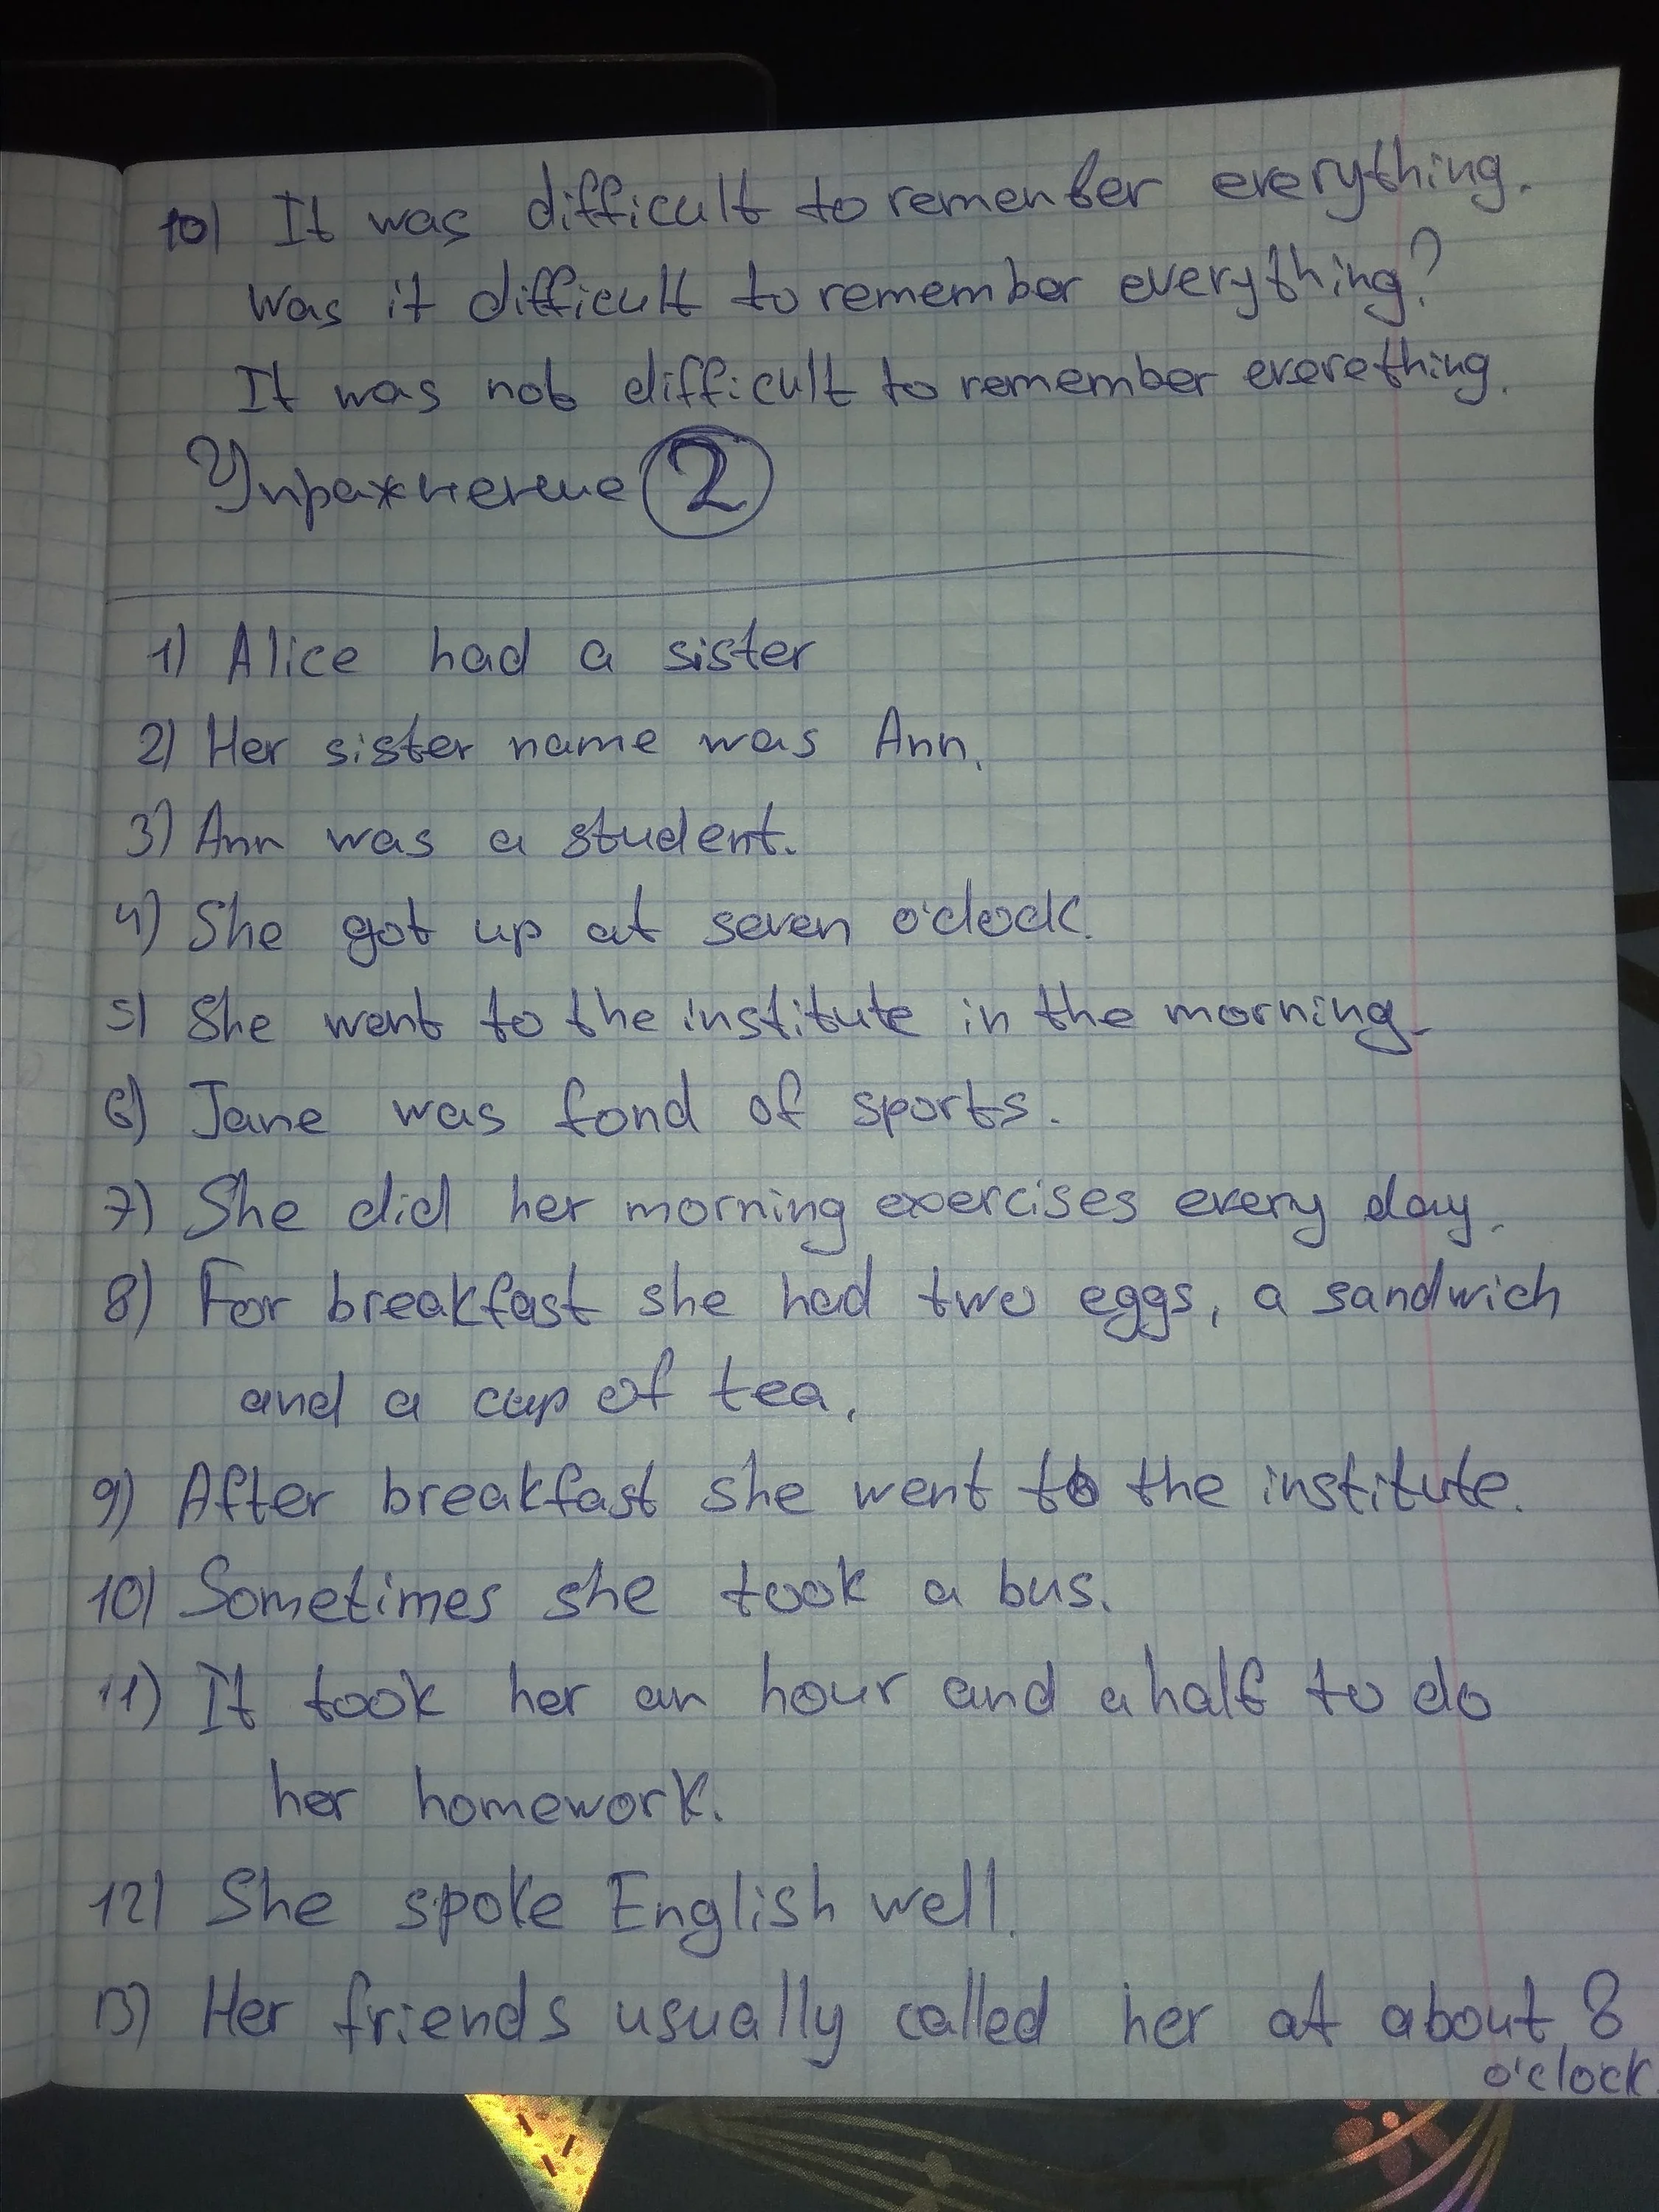 10) It was difficult to remenber everything.
Was it difficult to remember everything?
It was not difficult to remember everething.
Упражнение 2
1) Alice had a sister
2) Her sister name was Ann.
3) Ann was a student.
4) She got up at seven o'clock.
5) She went to the institute in the morning.
6) Jane was fond of sports.
7) She did her morning exercises every day.
8) For breakfast she had two eggs, a sandwich
and a cup of tea.
9) After breakfast she went to the institute.
10) Sometimes she took a bus.
11) It took her an hour and a half to do
her homework.
12) She spoke English well.
13) Her friends usually called her at about 8
o'clock.